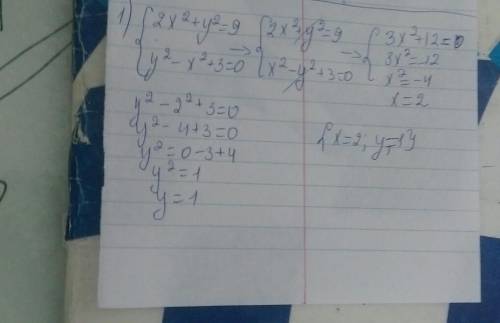 1) { 2x²+y²=9 → { 2x²+y²=9 → { 3x²+12=0
y²-x²+3=0 x²-y²+3=0 3x²=-12
x²=-4
x=2
y²-2²+3=0
y²-4+3=0
y²=0-3+4
y²=1
y=1
{x=2; y=1}